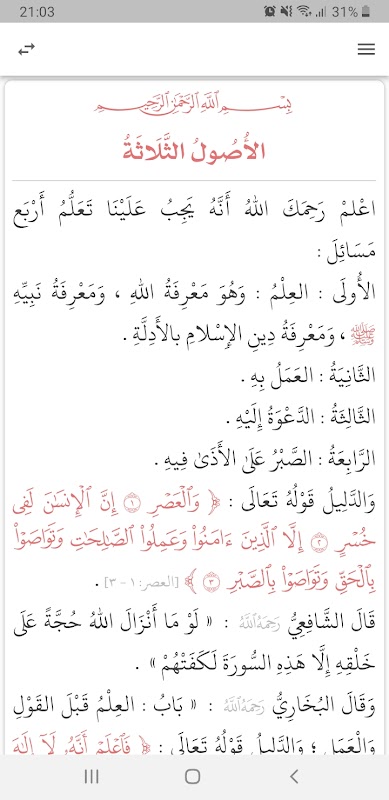 21:03 31%
بِسْمِ اللَّهِ الرَّحْمَٰنِ الرَّحِيمِ
الأُصُولُ الثَّلَاثَةُ
اعْلمْ رَحِمَكَ اللهُ أَنَّهُ يَجِبُ عَلَيْنَا تَعَلُّمُ أَرْبَعِ
مَسَائِلَ :
الأُولَى : العِلْمُ : وَهُوَ مَعْرِفَةُ اللهِ ، وَمَعْرِفَةُ نَبِيِّهِ
ﷺ ، وَمَعْرِفَةُ دِينِ الإِسْلامِ بالأَدِلَّةِ .
الثَّانِيَةُ : العَمَلُ بِهِ .
الثَّالِثَةُ : الدَّعْوَةُ إِلَيْهِ .
الرَّابِعَةُ : الصَّبْرُ عَلَىٰ الأَذَىٰ فِيهِ .
وَالدَّلِيلُ قَوْلُهُ تَعَالَى : ﴿ وَٱلْعَصْرِ ۝١ إِنَّ ٱلْإِنسَٰنَ لَفِى
خُسْرٍ ۝٢ إِلَّا ٱلَّذِينَ ءَامَنُوا۟ وَعَمِلُوا۟ ٱلصَّٰلِحَٰتِ وَتَوَاصَوْا۟
بِٱلْحَقِّ وَتَوَاصَوْا۟ بِٱلصَّبْرِ ۝٣ ﴾ [العصر: ١ - ٣] .
قَالَ الشَّافِعِيُّ رَحِمَهُ اللَّهُ : « لَوْ مَا أَنْزَالَ اللهُ حُجَّةً عَلَى
خَلْقِهِ إِلَّا هَذِهِ السُّورَةَ لَكَفَتْهُمْ » .
وَقَالَ البُخَارِيُّ رَحِمَهُ اللَّهُ : « بَابُ : العِلْمُ قَبْلَ القَوْلِ
وَالْعَمَلِ ؛ وَالدَّلِيلُ قَوْلُهُ تَعَالَى : ﴿ فَٱعْلَمْ أَنَّهُۥ لَآ إِلَٰهَ